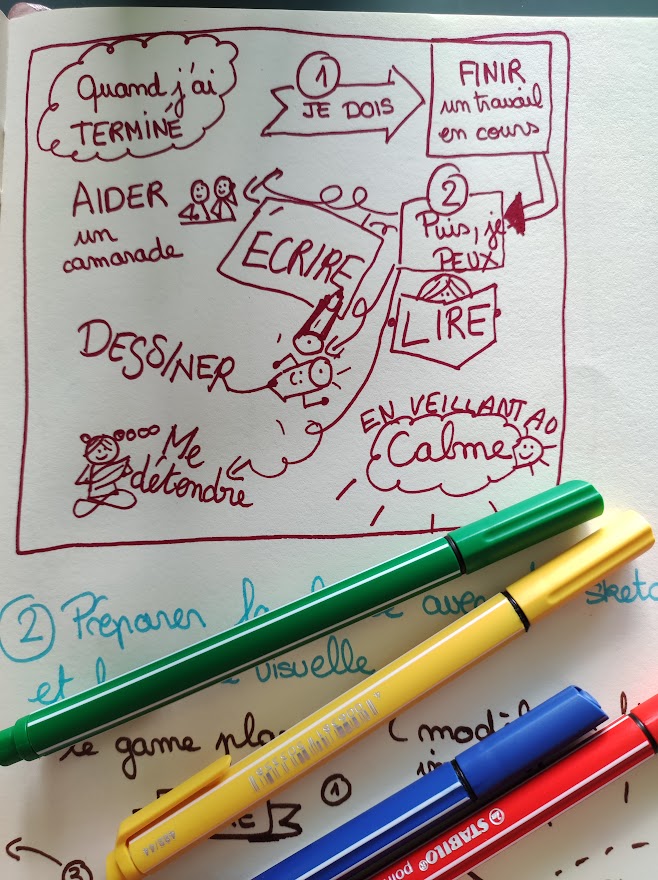 Quand j'ai
TERMINÉ
1
JE DOIS
FINIR
un travail
en cours
2
Puis, je
PEUX
AIDER
un
camarade
ECRIRE
LIRE
DESSINER
Me
détendre
EN VEILLANT AU
Calme
2 Préparer la avec
et visuelle
le game
1
3
STABILO